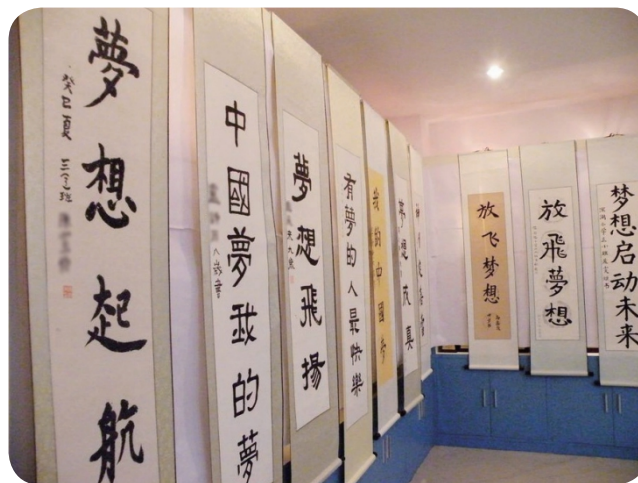 夢想起航
癸巳夏 三(2)班
中國夢我的夢
八歲書
夢想飛揚
有夢的人最快樂
我的中國夢
夢想成真
放飞梦想
放飛夢想
梦想启动未来